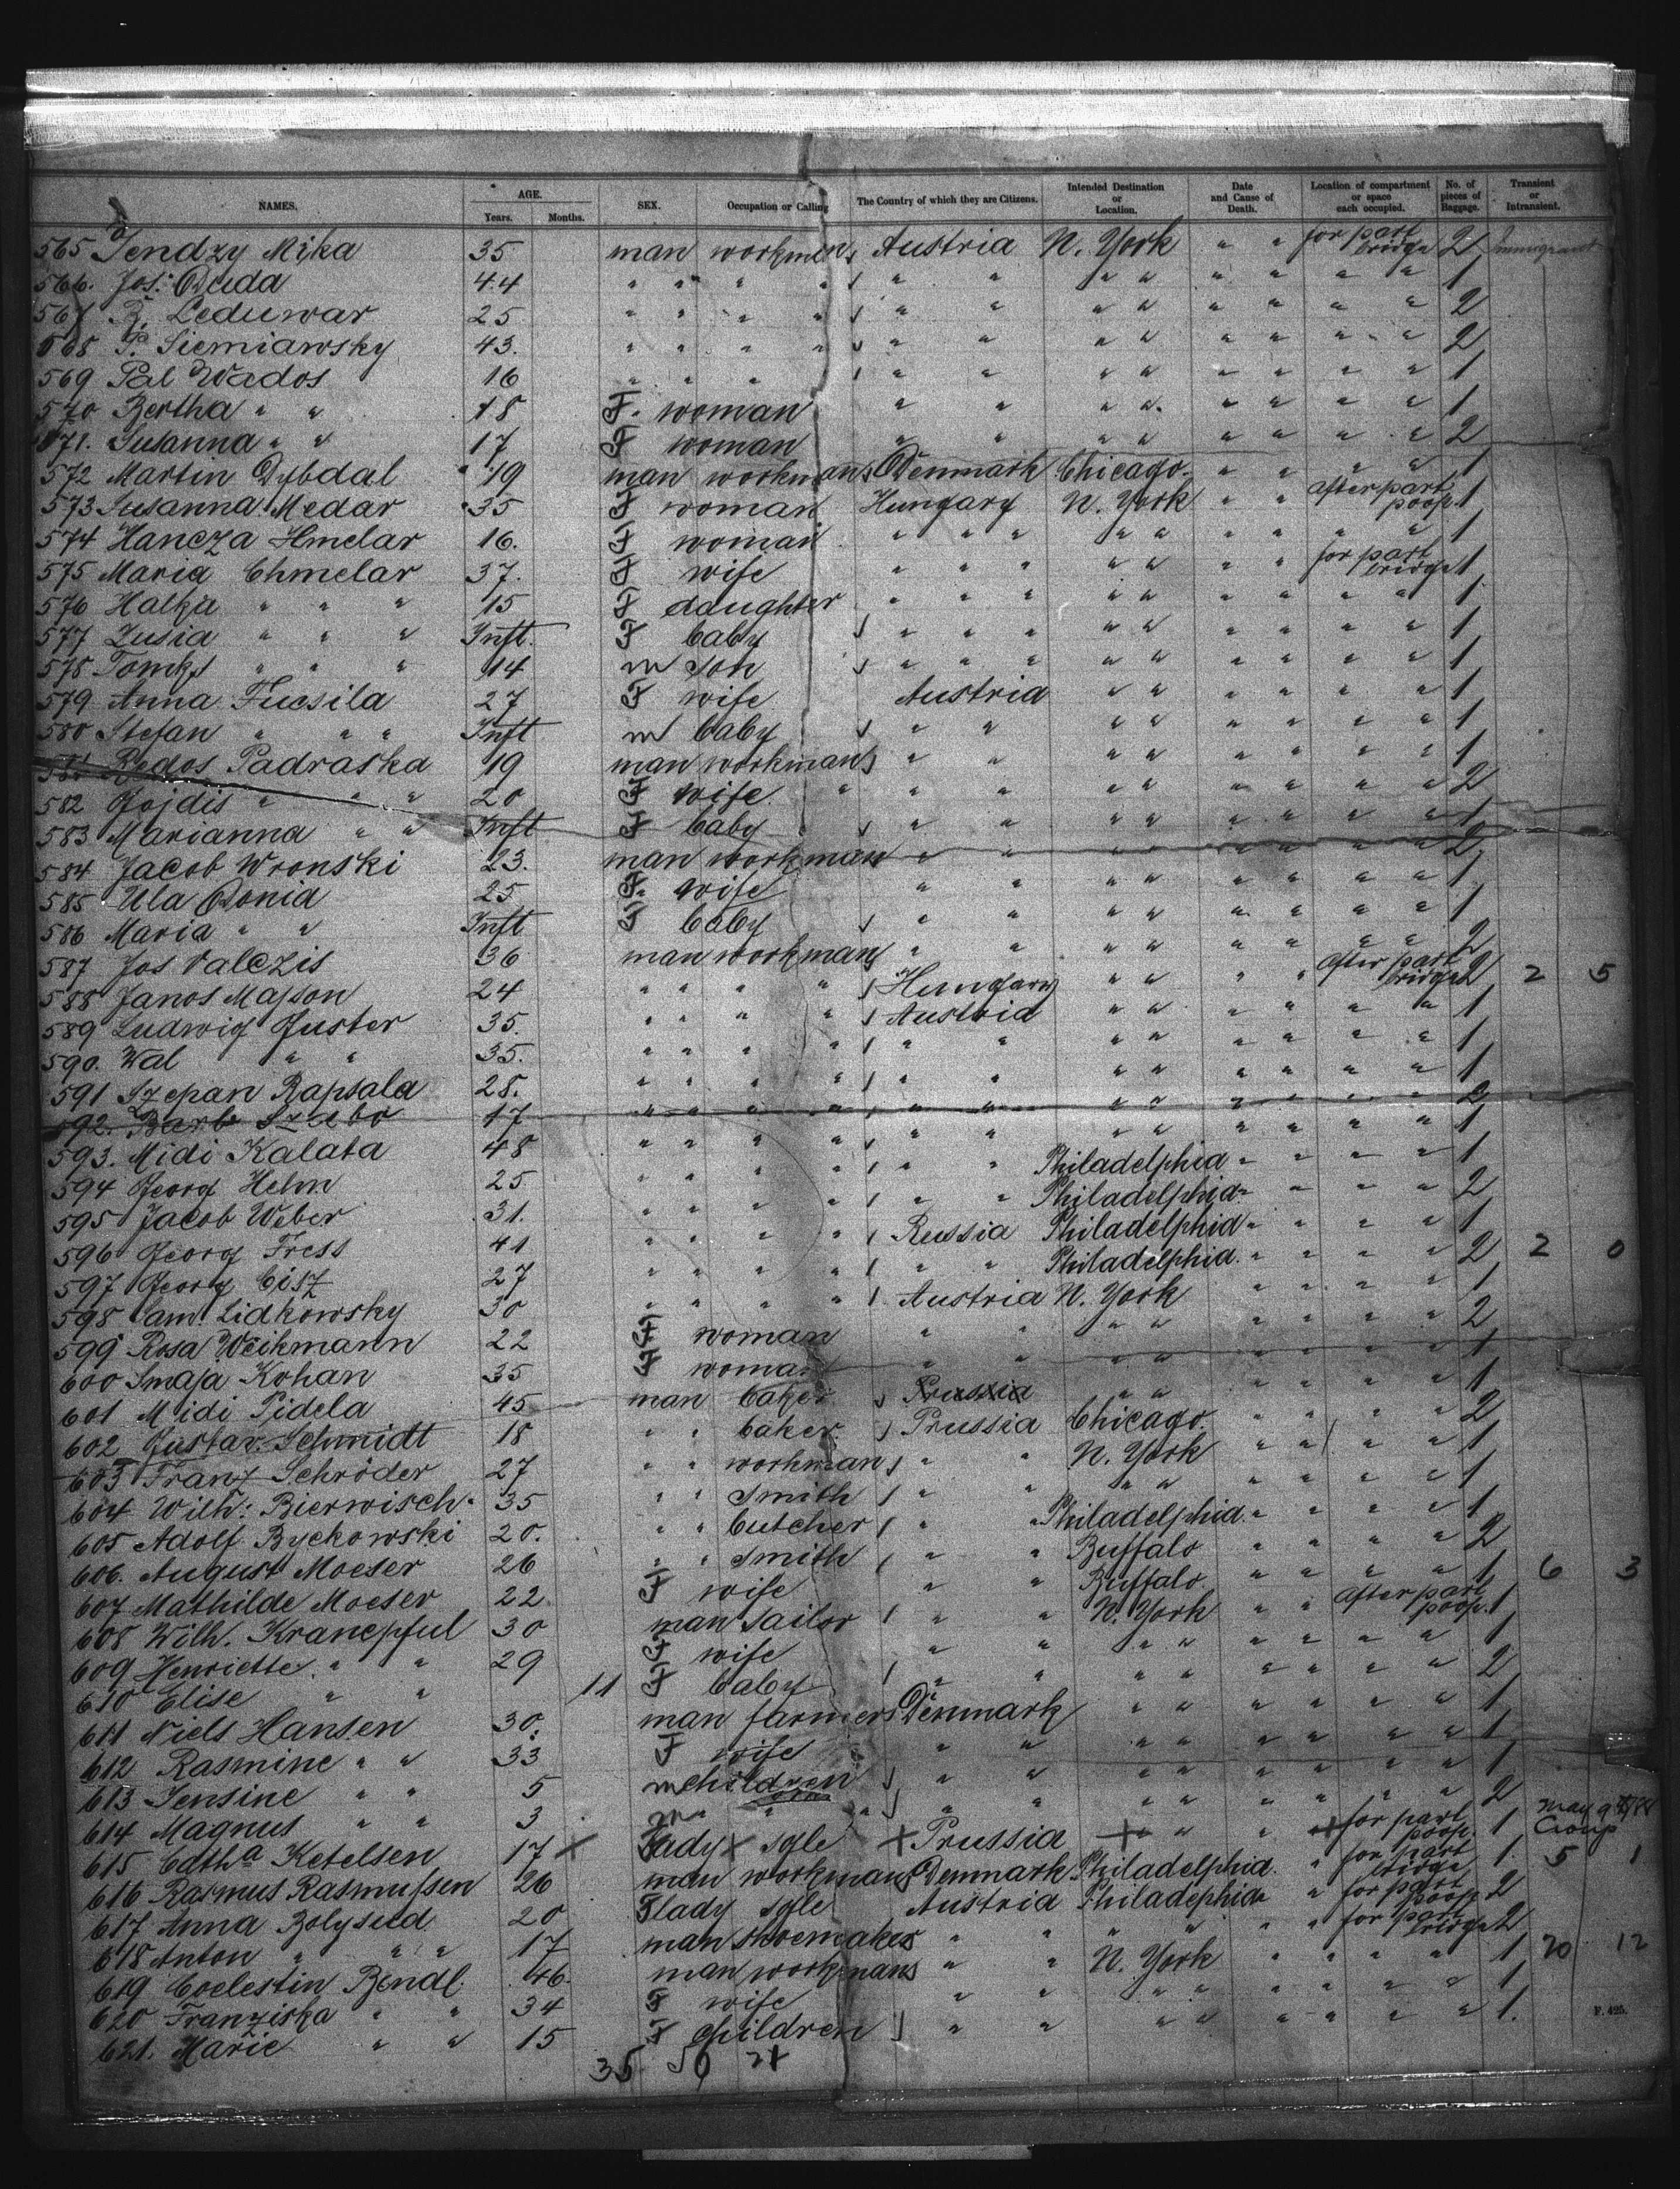 NAMES. AGE. Years. Months. SEX. Occupation or Calling The Country of which they are Citizens. Intended Destination or Location. Date and Cause of Death. Location of compartment or space each occupied. No. of pieces of Baggage. Transient or Intransient.
565 Jendzy Mika 35 man workmen Austria N. York " " for part bridge 2 Immigrant
566. Jos: Duda 44 " " " " " " " " " " " " 1
567 R. Leduwar 25 " " " " " " " " " " " " 2
568 P. Siemiawsky 43. " " " " " " " " " " " " 2
569 Pal Wados 16 " " " " " " " " " " " 1
570 Bertha " " 18 F. woman " " " " " " " " 1
571. Susanna " " 17 F woman " " " " " " " " 2
572 Martin Dybdal 19 man workmans Denmark Chicago. " " " " 1
573 Susanna Medar 35 F woman Hungary N. York " " after part poop. 1
574 Hancza Hmelar 16. F woman " " " " " " " " " 1
575 Maria Chmelar 37. F wife " " " " " " " for part bridge 1
576 Halka " " " 15 F daughter " " " " " " " " " 1
577 Zusia " " " Inft. F baby " " " " " " " " " 1
578 Tomks " " " 14 m son " " " " " " " " " 1
579 Anna Fucsila 27 F wife Austria " " " " " " 1
580 Stefan " " " Inft m baby " " " " " " " " 1
581 Redos Padraska 19 man workmans " " " " " " " " 1
582 Gojdis " " " 20 F wife " " " " " " " " " 2
583 Marianna " " Inft F baby " " " " " " " " 1
584 Jacob Wronski 23. man workman " " " " " " " " 2
585 Ula Donid 25 F. wife " " " " " " " " 1
586 Maria " " Inft F baby " " " " " " " " 1
587 Jos Valczis 36 man workmans " " " " " " " " 2
588 Janos Masson 24 " " " " Hungary " " " " after part bridge 2 2 5
589 Ludwig Guster 35. " " " " Austria " " " " " " 1
590. Wal " " 35. " " " " " " " " " " " " 1
591 Szepan Rapsala 28. " " " " " " " " " " " " 1
592. Barb Szebo 17 " " " " " " " " " " " " 2
593. Midi Kalata 48 " " " " " " " " " " " " 1
594 Georg Helm 25 " " " " " " Philadelphia " " " " 1
595 Jacob Weber 31. " " " " " " Philadelphia " " " " 2
596 Georg Fress 41 " " " " Russia Philadelphia " " " " 1
597 Georg Cisz 27 " " " " " " Philadelphia. " " " " 2 2 0
598 Sam. Lidkowsky 30 " " " " Austria N. York " " " " 1
599 Rosa Weihmann 22 F woman " " " " " " " " 2
600 Smaja Kohan 35 F woman " " " " " " " " 1
601 Midi Pidela 45 man baker Prussia " " " " " " 1
602 Gustav. Schmidt 18 " " baker Prussia Chicago. " " " " 2
603 Franz Schröder 27 " " workmans " " N. York " " " " 1
604 Wilh: Bierwisch. 35 " " Smith " " " " " " " " 1
605 Adolf Byckowski 20. " " butcher " " Philadelphia. " " " " 1
606. August Moeser 26 " " Smith " " Buffalo " " " " 2
607 Mathilde Moeser 22. F wife " " Buffalo. " " " " 1 6 3
608 Wilh. Kranepful 30 man Tailor " " N. York " " after part poop. 1
609 Henriette. " " 29 F wife " " " " " " " " 1
610 Elise " " 11 F baby " " " " " " " " 2
611 Niels Hansen 30. man farmers Denmark " " " " " " 1
612 Rasmine " " 33 F wife " " " " " " " " 1
613 Jensine " " 5 m children " " " " " " " " 1
614 Magnus " " 3 m " " " " " " " " " " 2
615 Edtha Ketelsen 17 X Lady X sgle X Prussia " " " for part poop. 1 May 9 Croup
616 Rasmus Rasmussen 26 man workmans Denmark Philadelphia. " for part bridge 1. 5 1
617 Anna Bolysud 20 F lady sgle Austria Philadelphia " for part poop 2
618 Anton " " " 17 man shoemakers " " " " " " for part bridge 2
619 Coelestin Bendl. 46. man workmans " " N. York " " " " 1 20 12
620 Franziska " " 34 F wife " " " " " " " " 1
621. Marie " " 15 F children " " " " " " " " 1.
F. 425.
35 56 21